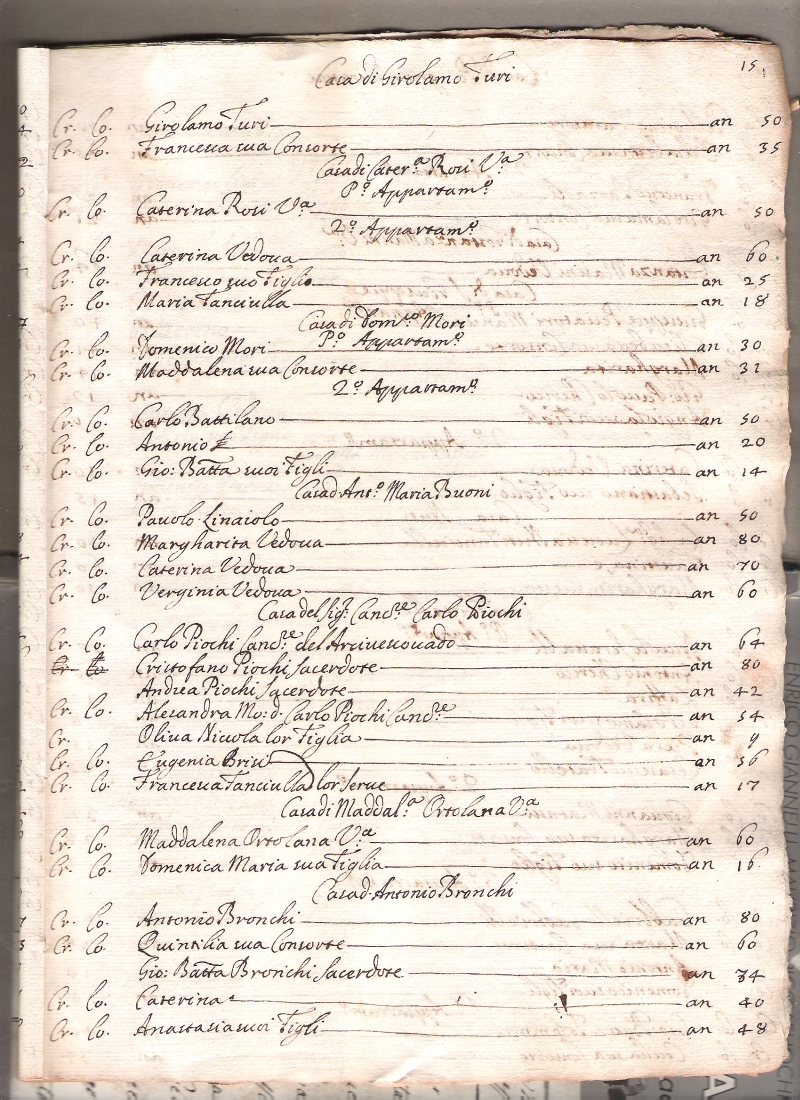 15
Casa di Girolamo Turi
Cr. Co. Girolamo Turi an 50
Cr. Co. Francesca sua Consorte an 35
Casa di Cater.ª Rosi V.ª
P.º Appartam.º
Cr. Co. Caterina Rosi V.ª an 50
2.º Appartam.º
Cr. Co. Caterina Vedova an 60
Cr. Co. Francesco suo Figlio an 25
Cr. Co. Maria fanciulla an 18
Casa di Dom.co Mori
P.º Appartam.º
Cr. Co. Domenico Mori an 30
Cr. Co. Maddalena sua Consorte an 31
2.º Appartam.º
Cr. Co. Carlo Battilano an 50
Cr. Co. Antonio an 20
Cr. Co. Gio: Batta suoi Figli an 14
Casa d'Ant.º Maria Buoni
Cr. Co. Pavolo Linaiolo an 50
Cr. Co. Margharita Vedova an 80
Cr. Co. Caterina Vedova an 70
Cr. Co. Verginia Vedova an 60
Casa del Sig.r Canc.re Carlo Piochi
Cr. Co. Carlo Piochi Canc.re del Arcivescovado an 64
Cr. Co. Cristofano Piochi Sacerdote an 80
Andrea Piochi Sacerdote an 42
Cr. Co. Alesandra Mo: d. Carlo Piochi Canc.re an 54
Cr. Oliva Niccola lor Figlia an 9
Cr. Co. Eugenia Brisi an 56
Cr. Co. Francesca fanciulla lor serve an 17
Casa di Maddal.ª Ortolana V.ª
Cr. Co. Maddalena Ortolana V.ª an 60
Cr. Co. Domenica Maria sua Figlia an 16
Casa d'Antonio Bronchi
Cr. Co. Antonio Bronchi an 80
Cr. Co. Quintilia sua Consorte an 60
Gio: Batta Bronchi Sacerdote an 34
Cr. Co. Caterina an 40
Cr. Co. Anastasia suoi Figli an 48